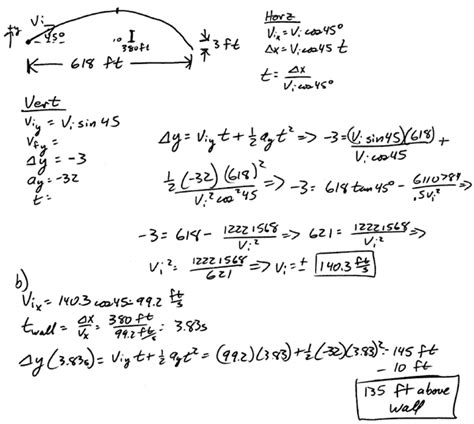 Horz
Vix = Vi cos45°
Δx = Vi cos45 t
t = Δx / Vi cos45°
+y
Vi
45°
10 I
380ft
3 ft
618 ft
Vert
Viy = Vi sin 45
Vfy =
Δy = -3
ay = -32
t =
Δy = Viy t + ½ ay t² => -3 = (Vi sin45)(618) / Vi cos45 +
½ (-32)(618)² / Vi² cos² 45 => -3 = 618 tan45° - 6110784 / .5Vi² =>
-3 = 618 - 12221568 / Vi² => 621 = 12221568 / Vi² =>
Vi² = 12221568 / 621 => Vi = ± 140.3 ft/s
b)
Vix = 140.3 cos45 = 99.2 ft/s
twall = Δx / Vx = 380 ft / 99.2 ft/s = 3.83s
Δy (3.83s) = Viy t + ½ ay t² = (99.2)(3.83) + ½ (-32)(3.83)² = 145 ft
- 10 ft
135 ft above
wall